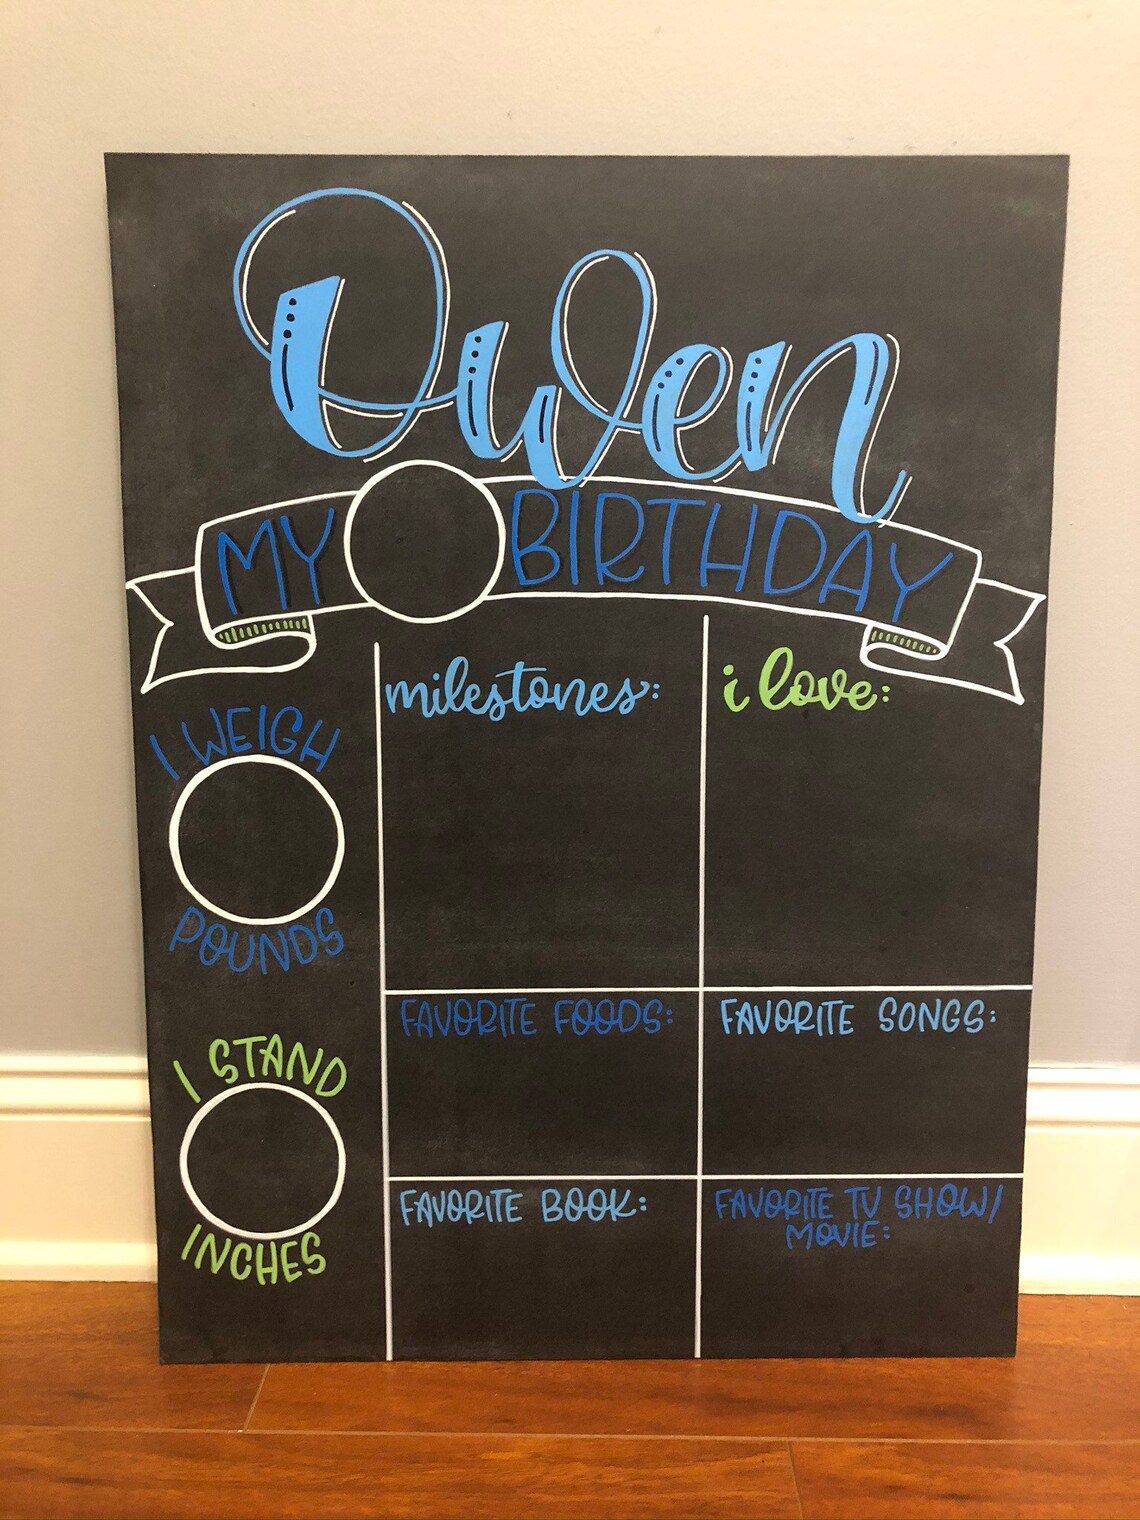 Owen
MY BIRTHDAY
milestones:
i love:
I WEIGH
POUNDS
FAVORITE FOODS:
FAVORITE SONGS:
I STAND
INCHES
FAVORITE BOOK:
FAVORITE TV SHOW/
MOVIE: